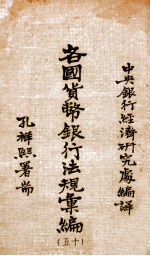 中央銀行經濟研究處編譯
各國貨幣銀行法規彙編
(十五)
孔祥熙署耑